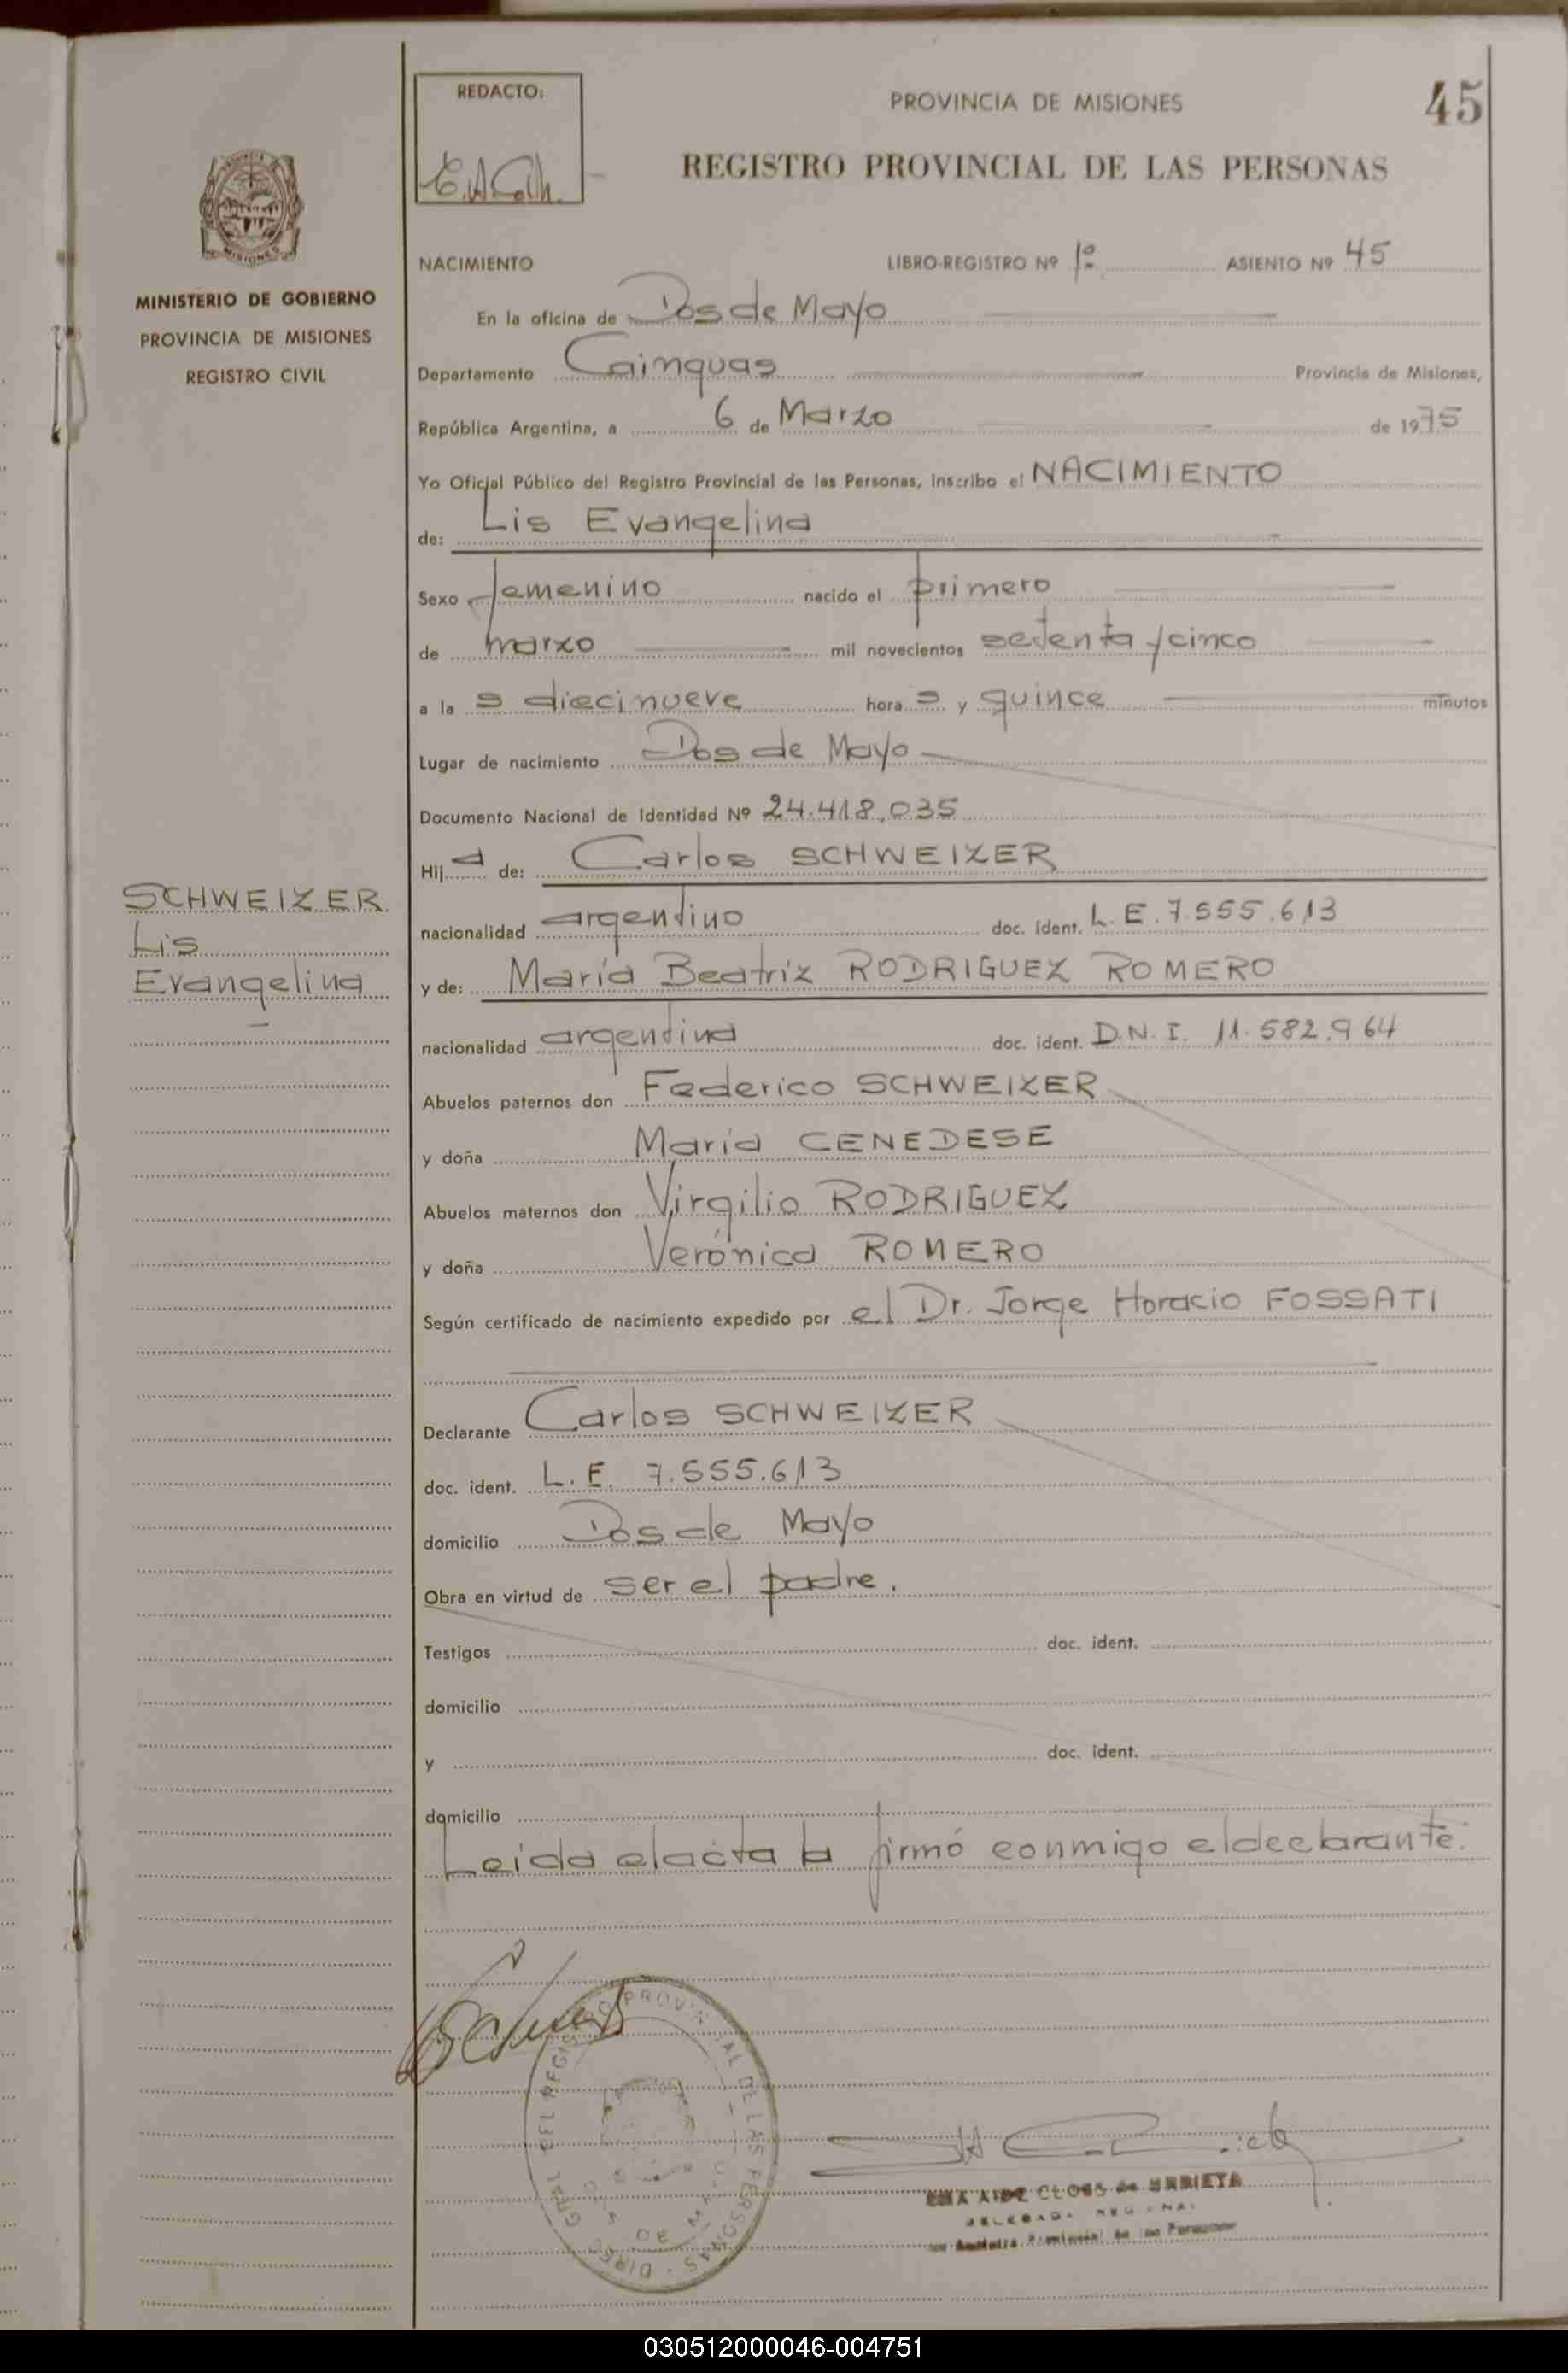 REDACTO:
PROVINCIA DE MISIONES
45
REGISTRO PROVINCIAL DE LAS PERSONAS
MISIONES
MINISTERIO DE GOBIERNO
PROVINCIA DE MISIONES
REGISTRO CIVIL
NACIMIENTO LIBRO-REGISTRO Nº 1º ASIENTO Nº 45
En la oficina de Dos de Mayo
Departamento Cainguas Provincia de Misiones,
República Argentina, a 6 de Marzo de 1975
Yo Oficial Público del Registro Provincial de las Personas, inscribo el NACIMIENTO
de: Lis Evangelina
Sexo femenino nacido el primero
de marzo mil novecientos setenta y cinco
a la s diecinueve hora s y quince minutos
Lugar de nacimiento Dos de Mayo
Documento Nacional de Identidad Nº 24.418.035
Hij a de: Carlos SCHWEIZER
SCHWEIZER
Lis
Evangelina
nacionalidad argentino doc. ident. L.E. 7.555.613
y de: María Beatriz RODRIGUEZ ROMERO
nacionalidad argentina doc. ident. D.N.I. 11.582.964
Abuelos paternos don Federico SCHWEIZER
y doña María CENEDESE
Abuelos maternos don Virgilio RODRIGUEZ
y doña Verónica ROMERO
Según certificado de nacimiento expedido por el Dr. Jorge Horacio FOSSATI
Declarante Carlos SCHWEIZER
doc. ident. L.E. 7.555.613
domicilio Dos de Mayo
Obra en virtud de ser el padre.
Testigos doc. ident.
domicilio
y doc. ident.
domicilio
Leida el acta la firmó conmigo el declarante.
DIREC. GRAL. DEL REGISTRO PROVINCIAL DE LAS PERSONAS
AIDE CLOSS de URRIETA
030512000046-004751